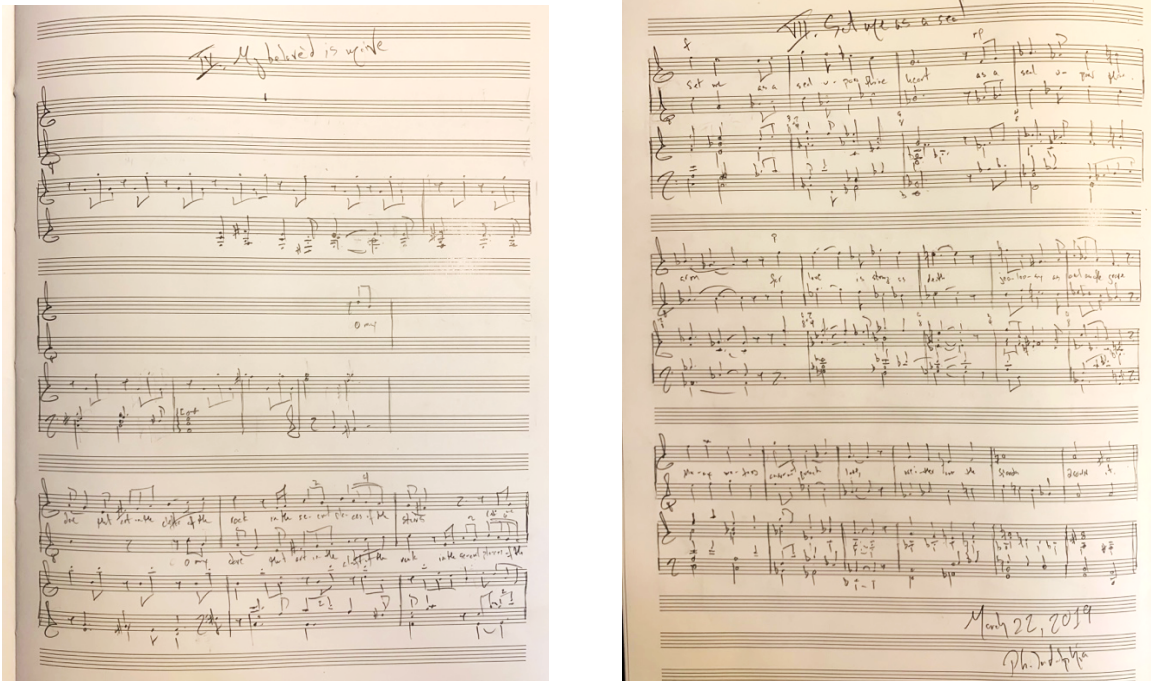 IV. My belovèd is mine
O my
dove that art in the clefts of the rock in the secret places of the stairs
O my dove that art in the clefts of the rock in the secret places of the
VII. Set me as a seal
set me as a seal u-pon thine heart as a seal u-pon thine
arm for love is strong as death jea-lou-sy as
ma-ny wa-ters cannot quench love, nei-ther can the floods
March 22, 2019
Philadelphia